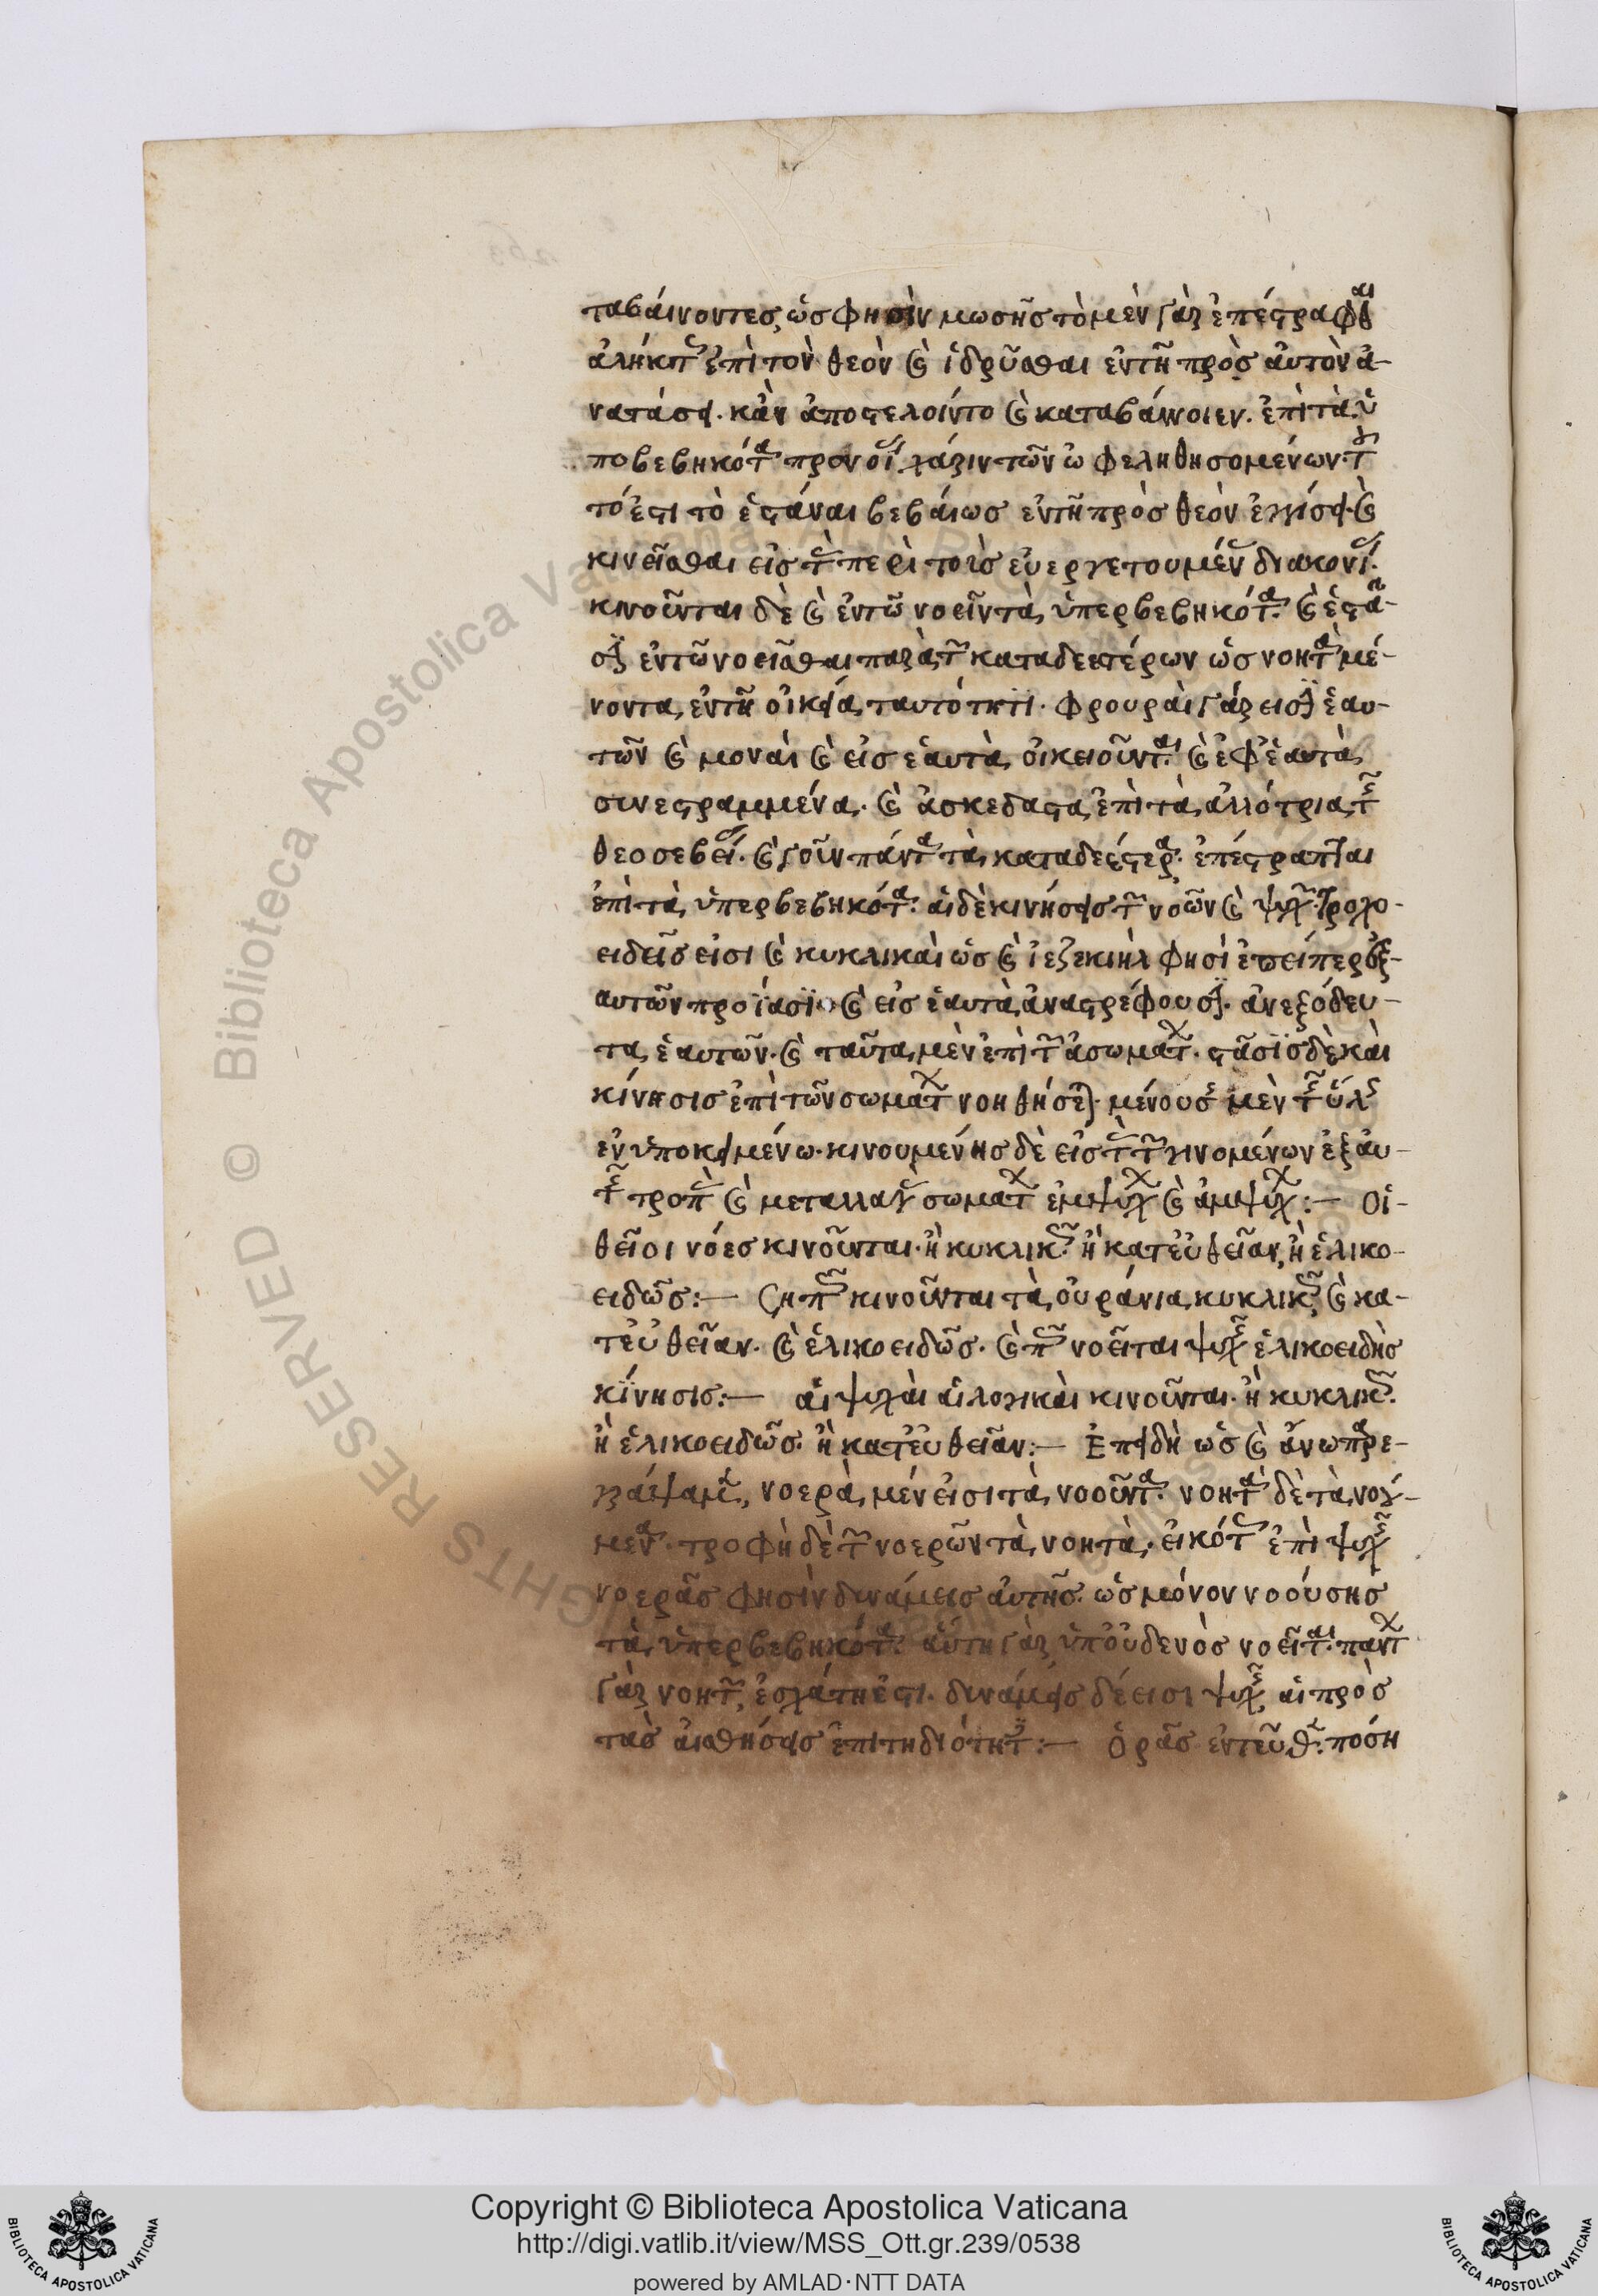 ταβαίνοντες, ὡς φησὶν μωσῆς τὸ μὲν γὰρ ἐπέστραφθαι
ἀλήκτως ἐπὶ τὸν θεὸν καὶ ἱδρῦσθαι ἐν τῆ πρὸς αὐτὸν ἀ-
νατάσει. κἂν ἀποστελοίντο καὶ καταβαίνοιεν. ἐπὶ τὰ ὑ
ποβεβηκότα προνοίας χάριν τῶν ὠφεληθησομένων. τοῦ
τό ἐστι τὸ ἑστάναι βεβαίως ἐν τῆ πρὸς θεὸν ἐγγίσει. καὶ
κινεῖσθαι εἰς τὴν περὶ τοὺς εὐεργετουμένους διακονίαν.
κινοῦνται δὲ καὶ ἐν τῶ νοεῖν τὰ ὑπερβεβηκότα. καὶ ἑστᾶ-
σιν ἐν τῶ νοεῖσθαι παρὰ τῶν καταδεεστέρων ὡς νοητὰ μέ-
νοντα, ἐν τῆ οἰκεία ταυτότητι. φρουραὶ γάρ εισιν ἑαυ-
τῶν καὶ μοναὶ καὶ εἰς ἑαυτὰ οἰκειοῦνται. καὶ ἐφ ἑαυτὰ
συνεστραμμένα. καὶ ἀσκέδαστα, ἐπὶ τὰ ἀλλότρια, τῆς
θεοσεβείας. καὶ γοῦν πάντα τὰ καταδεέστερα. ἐπέστραπται
ἐπὶ τὰ ὑπερβεβηκότα. αἱ δὲ κινήσεις τῶν νοῶν καὶ ψυχῶν τροχο-
ειδεῖς εἰσι καὶ κυκλικαὶ ὡς καὶ ἰεζεκιὴλ φησὶ ἐπείπερ ἐξ-
αυτῶν προΐασϊ. καὶ εἰς ἑαυτὰ ἀναστρέφουσιν. ἀνεξόδευ-
τα, ἑαυτῶν. καὶ ταῦτα μὲν ἐπὶ τῶν ἀσωμάτων. στάσϊς δὲ καὶ
κίνησις ἐπὶ τῶν σωμάτων νοηθήσεται. μένουσης μὲν τῆς ὕλης
ἐν ὑποκειμένω. κινουμένης δὲ εἰς τὴν τῶν γινομένων ἐξ αυ-
τῆς τροπὴν καὶ μεταλλαγὴν σωμάτων ἐμψύχων καὶ ἀμψύχων :— Οἱ-
θεῖοι νόες κινοῦνται. ἢ κυκλικῶς. ἢ κατ εὐθεῖαν, ἢ ἑλικο-
ειδῶς :— Ζητει πῶς κινοῦνται τὰ οὐράνια κυκλικῶς, καὶ κα-
τ εὐθεῖαν. καὶ ἑλικοειδῶς. καὶ πῶς νοεῖται ψυχῆς ἑλικοειδὴς
κίνησις :— αἱ ψυχαὶ αἱ λογικαὶ κινοῦνται. ἢ κυκλικῶς.
ἢ ἑλικοειδῶς. ἢ κατ εὐθεῖαν :— Ἐπειδὴ ὡς καὶ ἄνω παρε-
γράψαμεν, νοερὰ μέν εἰσι τὰ νοοῦντα. νοητὰ δὲ τὰ νού-
μενα. τροφὴ δὲ τῶν νοερῶν τὰ νοητὰ. εἰκότως ἐπὶ ψυχῆς
νοερᾶς φησὶν δυνάμεις αὐτῆς. ὡς μόνον νοούσης
τὰ ὑπερβεβηκότα. αὕτη γὰρ ὑπ οὐδενὸς νοεῖται. πάντων
γὰρ νοητῶν, ἐσχάτη ἐστι. δυνάμεις δέ εισι ψυχῆς, αἱ πρὸς
τὰς αἰσθήσεις ἐπιτηδιότητες :— Ὁρᾶς ἐντεῦθεν. πόση
Copyright © Biblioteca Apostolica Vaticana
http://digi.vatlib.it/view/MSS_Ott.gr.239/0538
powered by AMLAD·NTT DATA